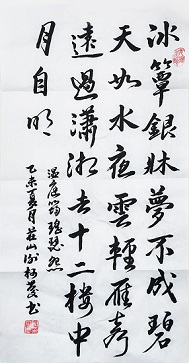 冰簟銀牀夢不成碧
天如水夜雲輕雁聲
遠過瀟湘去十二樓中
月自明
溫庭筠瑤瑟怨
乙未夏月書